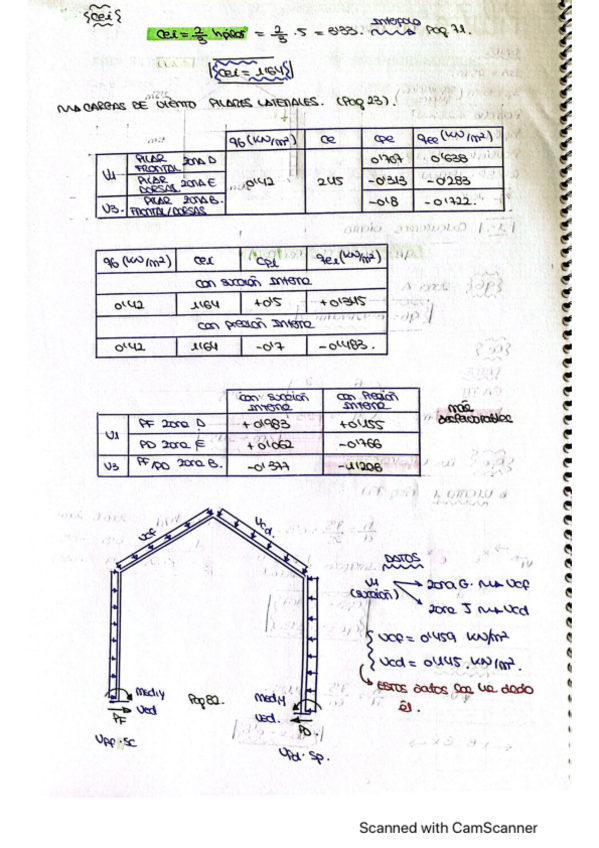 {cei}
Cei = 2/3 hpilar = 2/3 · 5 = 3'33. interpolo Pag 71.
{cei = 1'64}
CARGAS DE VIENTO PILARES LATERALES. (Pag 23).
qb (KN/m²) ce cpe qee (KN/m²)
V1 PILAR FRONTAL ZONA D 0'42 2'45 0'707 0'638
PILAR DORSAL ZONA E -0'313 -0'283
V3. PILAR ZONA B. FRONTAL/DORSAL -0'8 -0'722.
qb (KN/m²) cei cpi qei (KN/m²)
con succión interna
0'42 1'64 +0'5 +0'345
con presión interna
0'42 1'64 -0'7 -0'483.
con succión interna con presión interna
más desfavorables
V1 PF zona D +0'983 +0'155
PD zona E +0'062 -0'766
V3 PF/PD zona B. -0'377 -1'206
Vcf Vcd.
DATOS
V1 (succión) zona G. Vcf
zona J Vcd
Vcf = 0'459 KN/m²
Vcd = 0'145. KN/m².
ESTOS datos los ha dado él.
Med,y Pag 82. Med,y
Ved Ved.
PF PD
Vpf·sc Vpd·sp.
Scanned with CamScanner